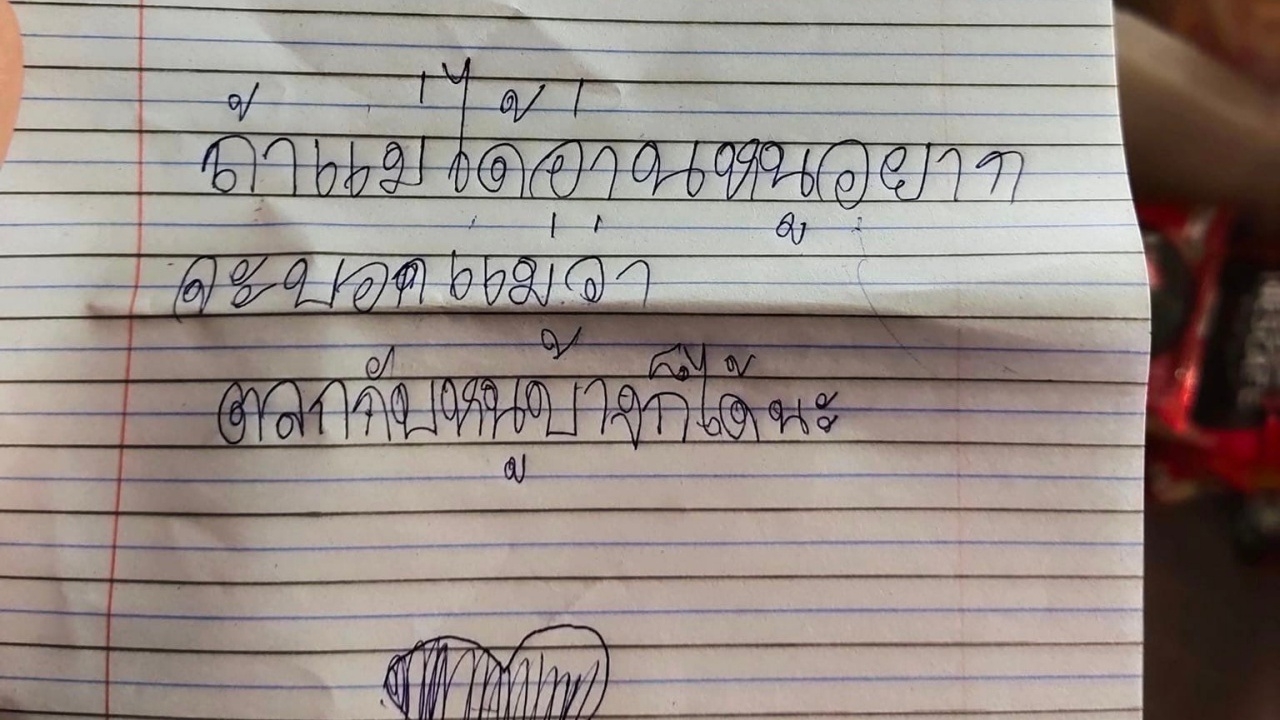 ถ้าแม่ได้อ่านหนูอยาก
จะบอกแม่ว่า
ตลกกับหนูบ้างก็ได้นะ